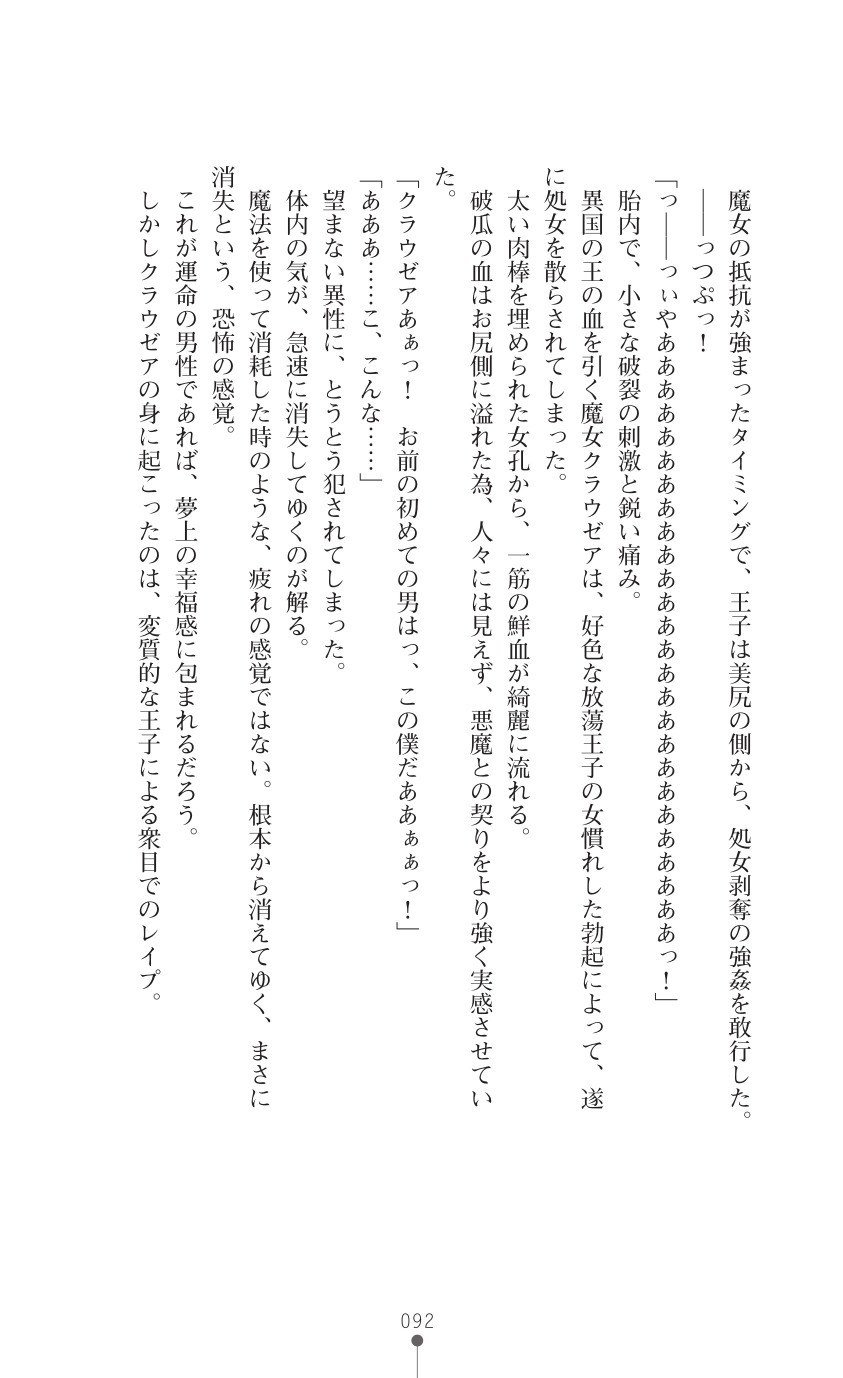 魔女の抵抗が強まったタイミングで、王子は美尻の側から、処女剥奪の強姦を敢行した。
――っつぷっ！
「っ――っぃやああああああああああああああああああああああああああっ！」
胎内で、小さな破裂の刺激と鋭い痛み。
異国の王の血を引く魔女クラウゼアは、好色な放蕩王子の女慣れした勃起によって、遂
に処女を散らされてしまった。
太い肉棒を埋められた女孔から、一筋の鮮血が綺麗に流れる。
破瓜の血はお尻側に溢れた為、人々には見えず、悪魔との契りをより強く実感させてい
た。
「クラウゼアあぁっ！　お前の初めての男はっ、この僕だああぁぁっ！」
「あああ……こ、こんな……」
望まない異性に、とうとう犯されてしまった。
体内の気が、急速に消失してゆくのが解る。
魔法を使って消耗した時のような、疲れの感覚ではない。根本から消えてゆく、まさに
消失という、恐怖の感覚。
これが運命の男性であれば、夢上の幸福感に包まれるだろう。
しかしクラウゼアの身に起こったのは、変質的な王子による衆目でのレイプ。
092